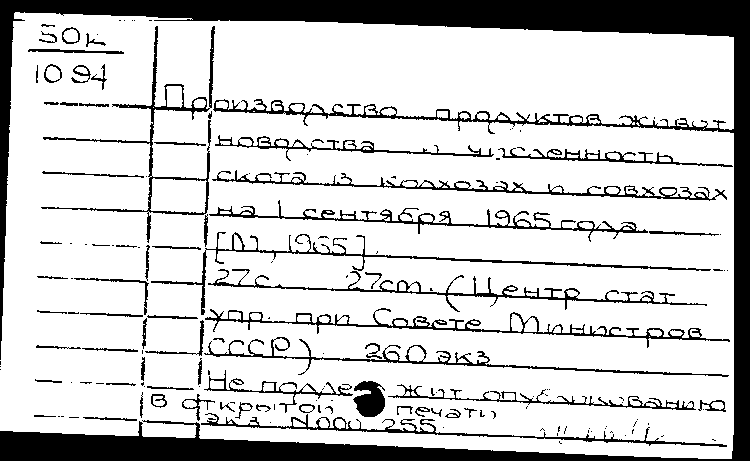 50к
1094
Производство продуктов живот
новодства и численность
скота в колхозах и совхозах
на 1 сентября 1965 года.
[М., 1965]
27с. 27cm. (Центр стат
упр. при Совете Министров
СССР) 260 экз
Не подлежит опубликованию
в открытой печати
экз. N000 255